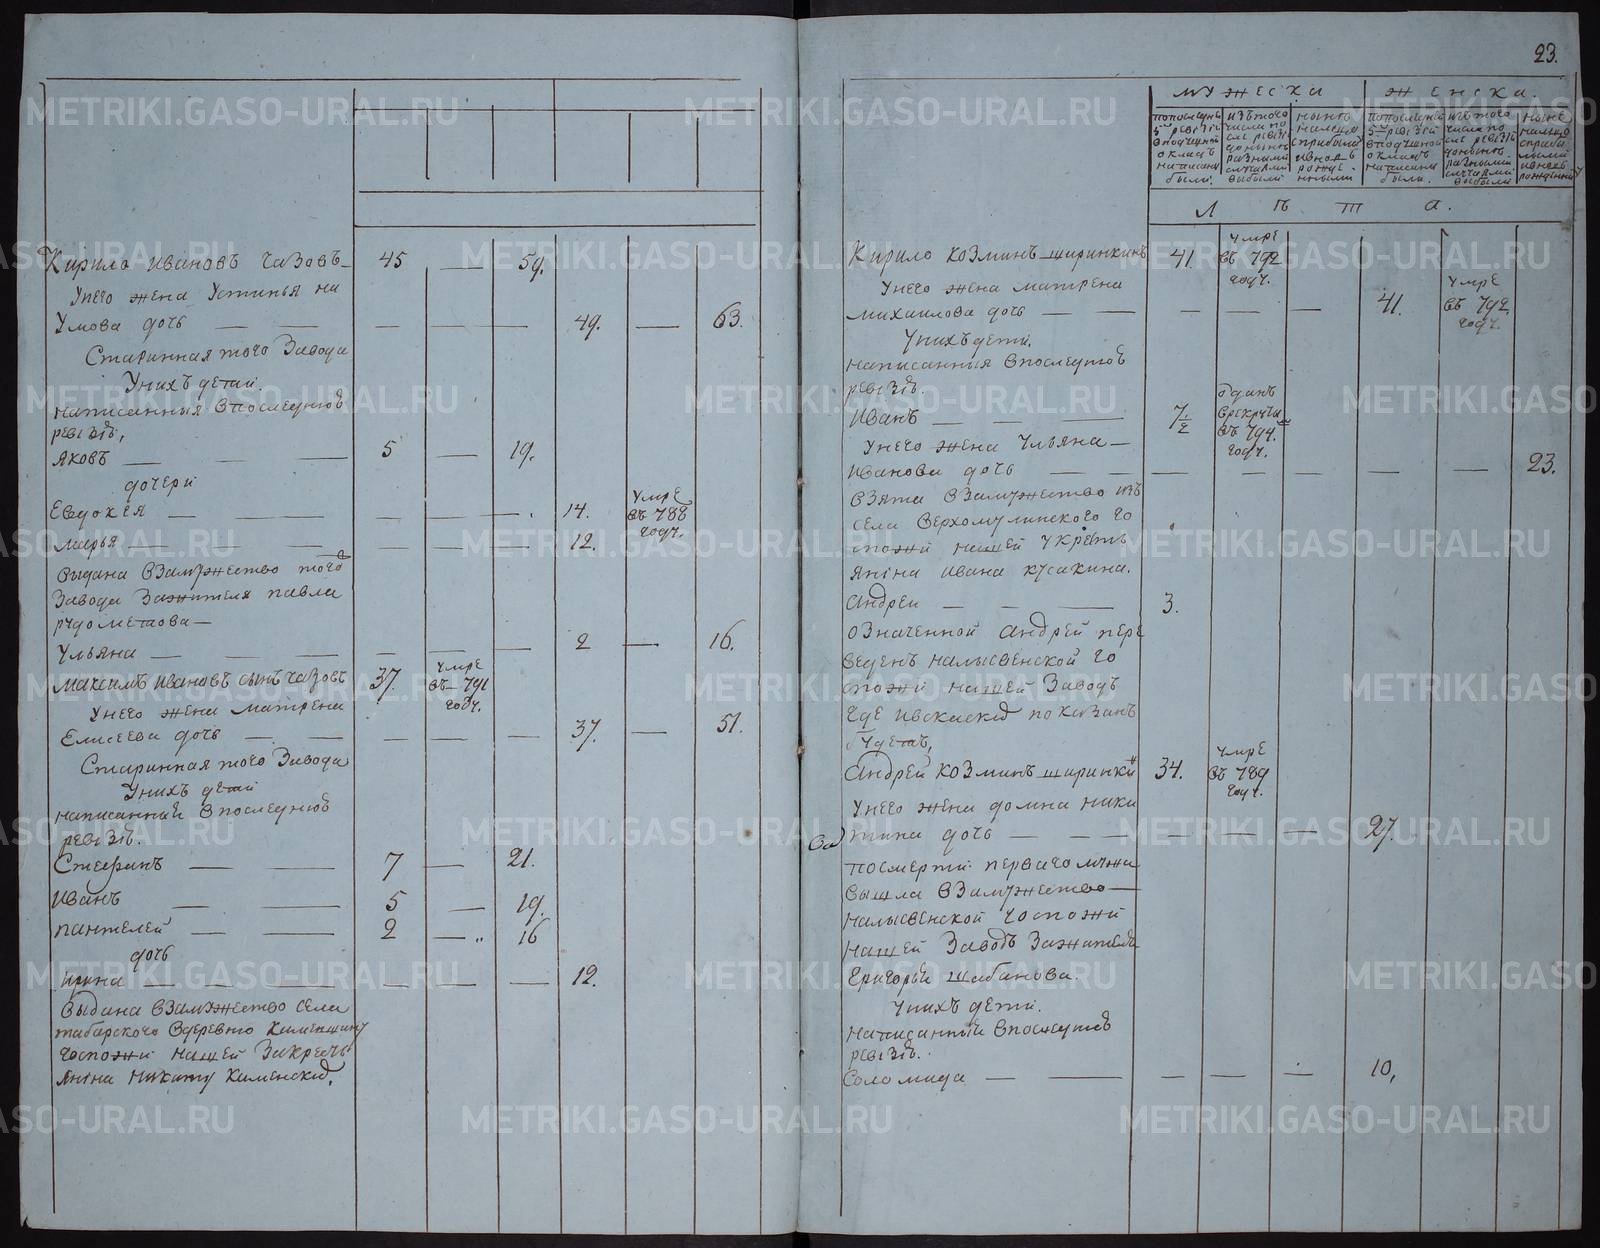 Кирило Ивановъ Чазовъ 45 — 59.
Унего жена Устинья На
Умова дочь — — — — — 49. — 63.
Старинная того Завода
Унихъ детй.
написанныя Впоследнюю
ревізію,
Яковъ — — 5 — 19.
дочери
Евдокія — — — — — 14. Умре въ 788 году.
Марья — — — — — 12.
Выдана Взамужество того
Завода Зажителя павла
рудометова —
Ульяна — — — — — 2 — 16.
Максимъ Ивановъ сынъ Чазовъ 37. Умре въ 791 году.
Унего жена Матрена
Елисеева дочь — — — — — 37. — 51.
Старинная того Завода
Унихъ детй
написанный Впоследнюю
ревізію.
Стефанъ — — 7 — 21.
Иванъ — — 5 — 19.
пантелей — — 2 — 16
дочь
Ирина — — — — — 12.
Выдана Взамужество Села
табарского Вдеревню
госпожи нашей Закресть
янина Никиту
23.
мужеска женска.
попоследней 5й ревізіи вподушной окладъ написаны были.
изътого числа после ревізіи доныне разными случаями выбыли
ныне налицо сприбылыми ивновь рожденными
попоследней 5й ревізіи вподушной окладъ написаны были.
изътого числа после ревізіи доныне разными случаями выбыли
ныне налицо сприбылыми ивновь рожденными
Л ѣ т а.
Кирило Козминъ ширинкинъ 41. Умре въ 792 году.
Унего жена матрена
михаилова дочь — — — — — 41. Умре въ 792 году.
Унихъ дети.
написанныя Впоследнюю
ревізію.
Иванъ — — — 7½ Отданъ Врекруты въ 794. году.
Унего жена Ульяна —
Иванова дочь — — — — — — — 23.
Взята Взамужество изъ
села Верхомулинского го
спожи нашей Укресть
янина Ивана Кусакина.
Андреи — — — 3.
Означенной Андрей пере
веденъ налысвенской го
спожи нашей Заводъ
где показанъ
будетъ,
Андрей Козминъ ширинки 34. Умре въ 789 году.
Унего жена домна ники
тина дочь — — — — — — 27.
посмерти перваго мужа
Вышла Взамужество —
налысвенской госпожи
нашей Заводъ Зажителя
Григорья Шабанова.
Унихъ дети.
написанные Впоследнюю
ревізію.
Соломида — — — — — 10,